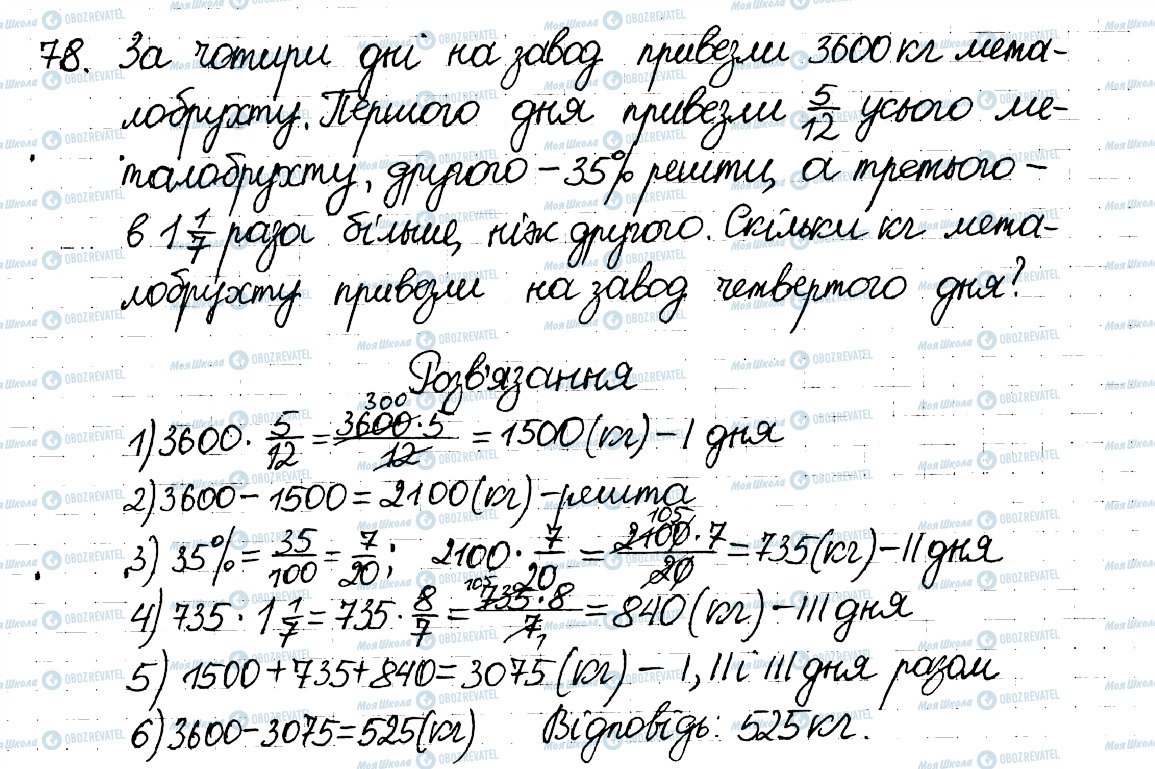 78. За чотири дні на завод привезли 3600 кг мета-
лобрухту. Першого дня привезли 5/12 усього ме-
талобрухту, другого – 35% решти, а третього –
в 1 1/7 раза більше, ніж другого. Скільки кг мета-
лобрухту привезли на завод четвертого дня?
Розв'язання
1) 3600 · 5/12 = 3600·5/12 = 1500 (кг) – І дня
300
2) 3600 – 1500 = 2100 (кг) – решта
3) 35% = 35/100 = 7/20; 2100 · 7/20 = 2100·7/20 = 735 (кг) – ІІ дня
105
4) 735 · 1 1/7 = 735 · 8/7 = 735·8/7 = 840 (кг) – ІІІ дня
105 1
5) 1500 + 735 + 840 = 3075 (кг) – І, ІІ і ІІІ дня разом
6) 3600 – 3075 = 525 (кг) Відповідь: 525 кг.
Моя Школа OBOZREVATEL